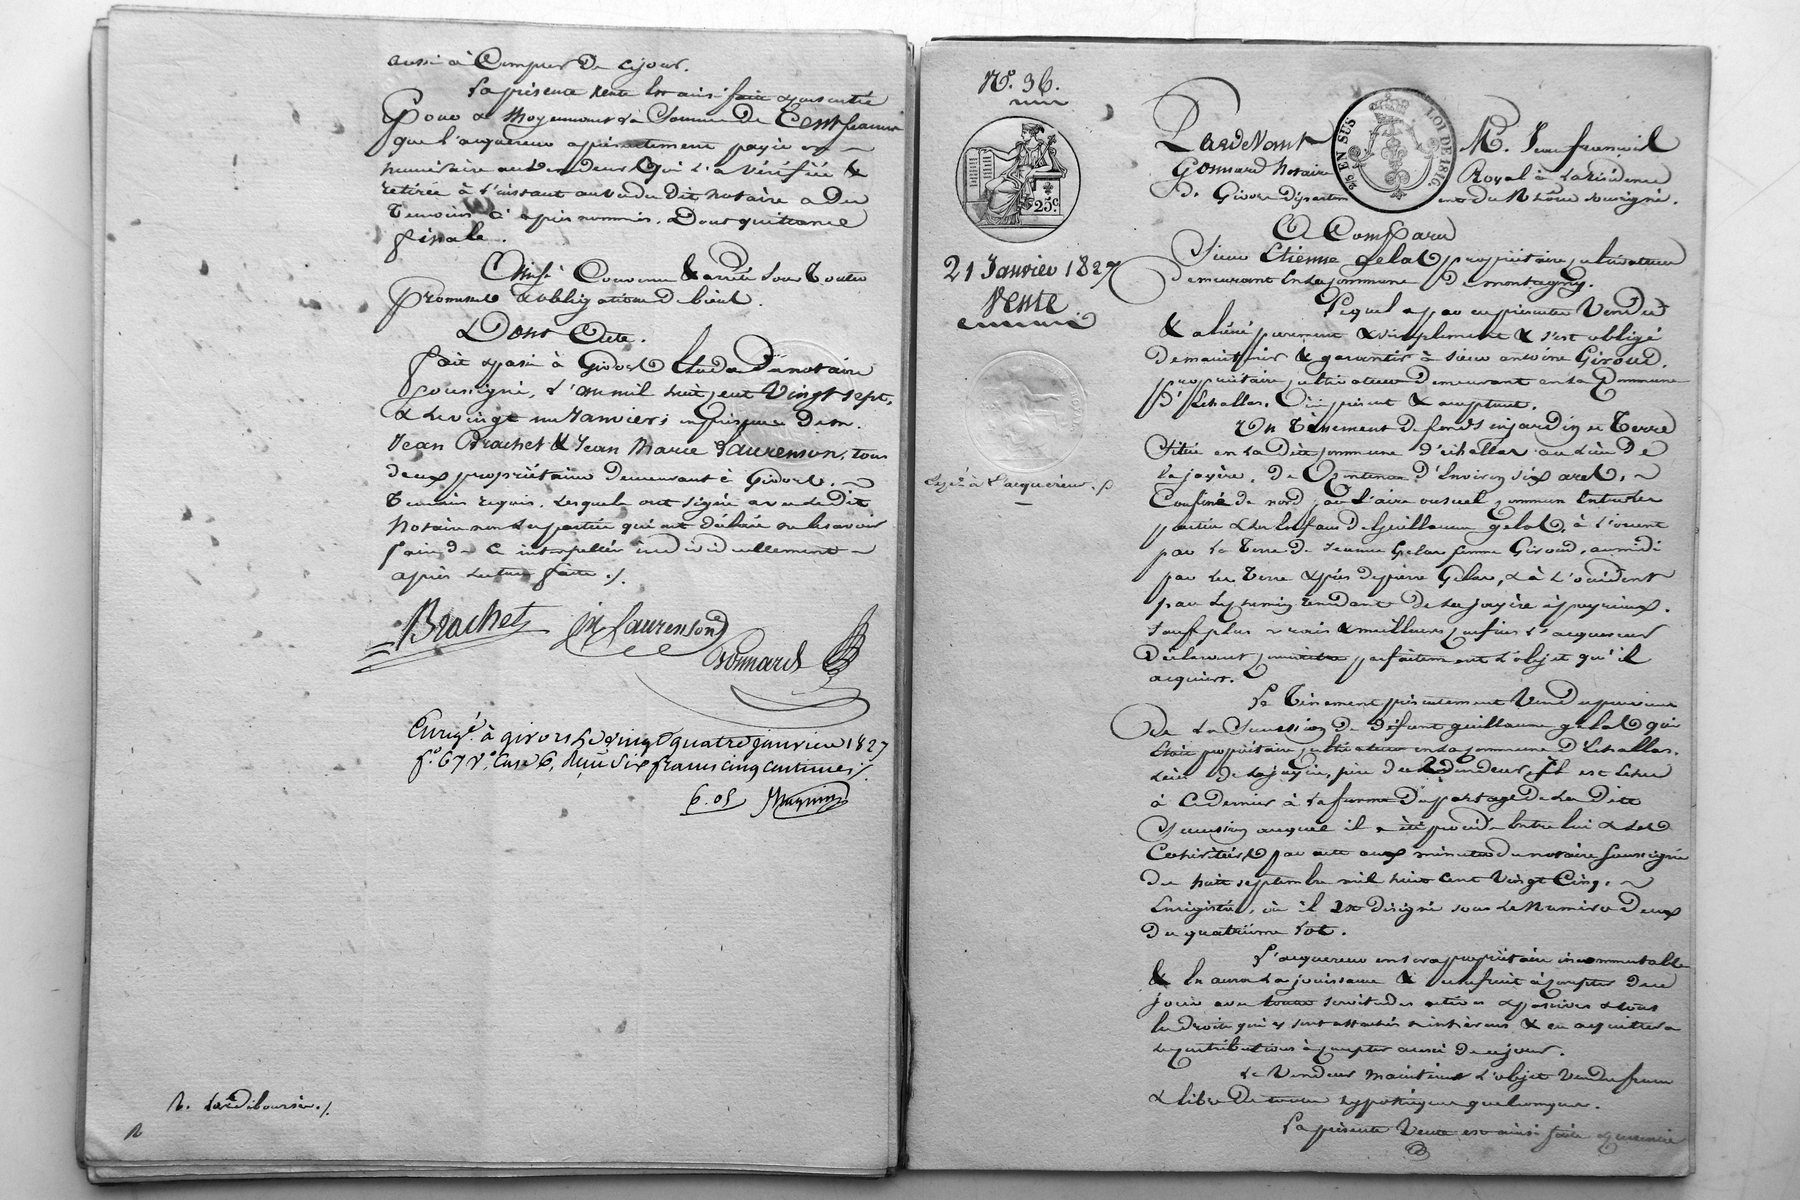 aussi à Compter de cejour.
La présente vente est ainsi faite & consentie
Pour & Moyennant la Somme de Cent francs
que l'acquereur a présentement payée en
numéraire au vendeur qui l'a vérifiée &
retirée à l'instant au vu du dit notaire & des
Temoins ci après nommés. Dont quittance
finale.
Ainsi Convenu & arrêté sous toutes
promesses & obligations de biens.
Dont Acte.
fait & passé à Givors Etude du notaire
soussigné, l'an mil huit cent vingt sept,
& le vingt un Janvier; en présence de m.
Jean Brachet & Jean Marie Laurenson, tous
deux propriétaires demeurant à Givors.
Temoins requis, lesquels ont signé avec le dit
Notaire non les parties qui ont déclaré ne le savoir
faire de ce interpellées individuellement
après lecture faite ./.
Brachet
JM Laurenson
Gonnard
Enregé. à givors le vingt quatre janvier 1827
fo. 67 Vo. Case 6, Reçu Six francs cinq centimes ./.
6.05
No. 36.
25c.
21 Janvier 1827
Vente
Expé. à l'acquéreur.
2/5 EN SUS
LOI DE 1816.
Pardevant M. Jean françois
Gonnard Notaire Royal à la résidence
de Givors Département du Rhône soussigné.
A Comparu
Sieur Etienne Gelas propriétaire cultivateur
demeurant en la commune de montagny.
Lequel a par ces présentes Vendu
& aliéné purement & simplement & s'est obligé
de maintenir & garantir à sieur antoine Giroud,
propriétaire cultivateur demeurant en la Commune
d'Echallas. Ci présent & acceptant.
Un Tènement de fonds en jardin et Terre
Situé en la dite commune d'échallas au Lieu de
la jayère, de Contenue d'Environ six ares,
Confiné de nord par l'aire ou suel commun entre les
parties & les Enfans de Guillaume gelas, à l'orient
par la Terre de Jeanne Gelas femme Giroud, au midi
par les Terre & prés de pierre Gelas, & à l'occident
par le chemin tendant de la jayère à payrieux.
Sauf plus vrais & meilleurs confins l'acquereur
déclarant connaître parfaitement l'objet qu'il
acquiert.
Le Tènement présentement Vendu provient
de la Succession de défunt guillaume gelas qui
était propriétaire cultivateur en la commune d'Echallas.
Lieu de la jayère, père du Vendeur, Il est échu
à ce dernier à la forme du partage de la dite
Succession auquel il a été procédé entre lui & ses
Cohéritiers par acte aux minutes du notaire soussigné
du huit septembre mil huit cent vingt Cinq,
Enregistré, où il est désigné sous le Numéro deux
du quatrième Lot.
L'acquereur en sera propriétaire incommutable
& en aura la jouissance & usufruit à compter de ce
jour avec toutes servitudes actives & passives & tous
les droits qui y sont attachés & inhérens & en acquittera
les contributions à compter aussi de ce jour.
Le Vendeur maintient l'objet Vendu franc
& libre de toutes hypothèques quelconques.
La présente Vente est ainsi faite & consentie